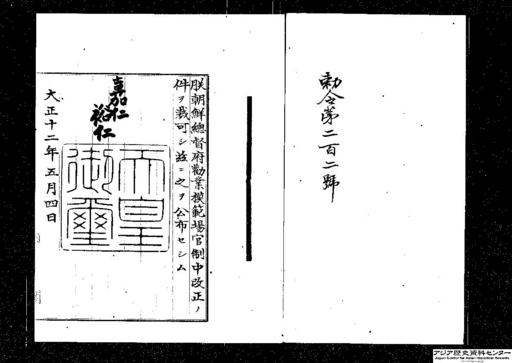 勅令第二百二號
朕朝鮮總督府勸業模範場官制中改正ノ
件ヲ裁可シ茲ニ之ヲ公布セシム
嘉仁
裕仁
天皇御璽
大正十二年五月四日
アジア歴史資料センター
Japan Center for Asian Historical Records